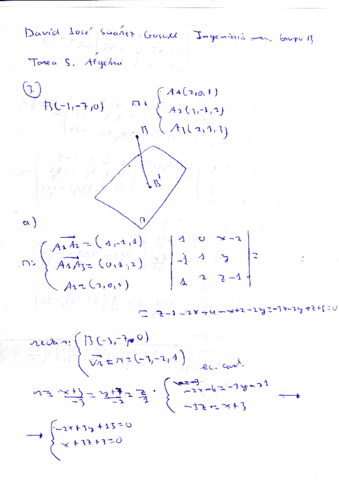 David José Suárez Ingeniería Grupo B
Tarea 5. Álgebra
3.
B(-3,-7,0) π: A1(2,0,1)
A2(3,-1,2)
A3(2,1,3)
B
B'
π
a)
π: A1A2 = (1,-1,1)
A1A3 = (0,1,2)
A1 = (2,0,1)
1 0 x-2
-1 1 y
1 2 z-1 =
= z-1-2x+4-x+2-2y = -3x-2y+z+5=0
recta r: B(-3,-7,0)
= n = (-3,-2,1)
r ≡ x+3/-3 = y+7/-2 = z/1 . ec. cart.
-2x-6=-3y-21
-3z=x+3 →
→ -2x+3y+15=0
x+3z+3=0